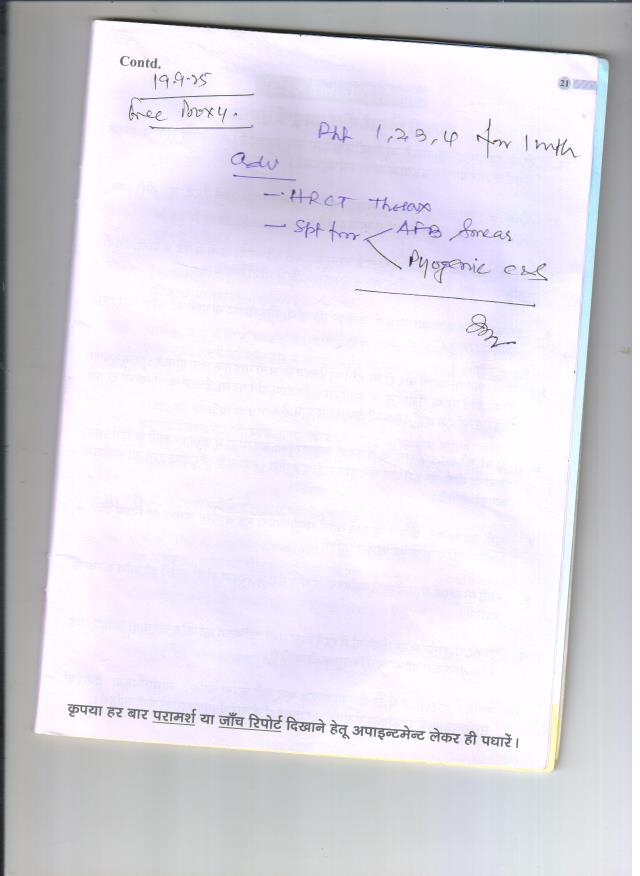 Contd.
21
19.9.25
Free Proxy.
Rpt 1,2,3,4 for 1 mth
Adv
- HRCT Thorax
- Spt for AFB Smear
Pyogenic c&s
कृपया हर बार परामर्श या जाँच रिपोर्ट दिखाने हेतू अपाइन्टमेन्ट लेकर ही पधारें।